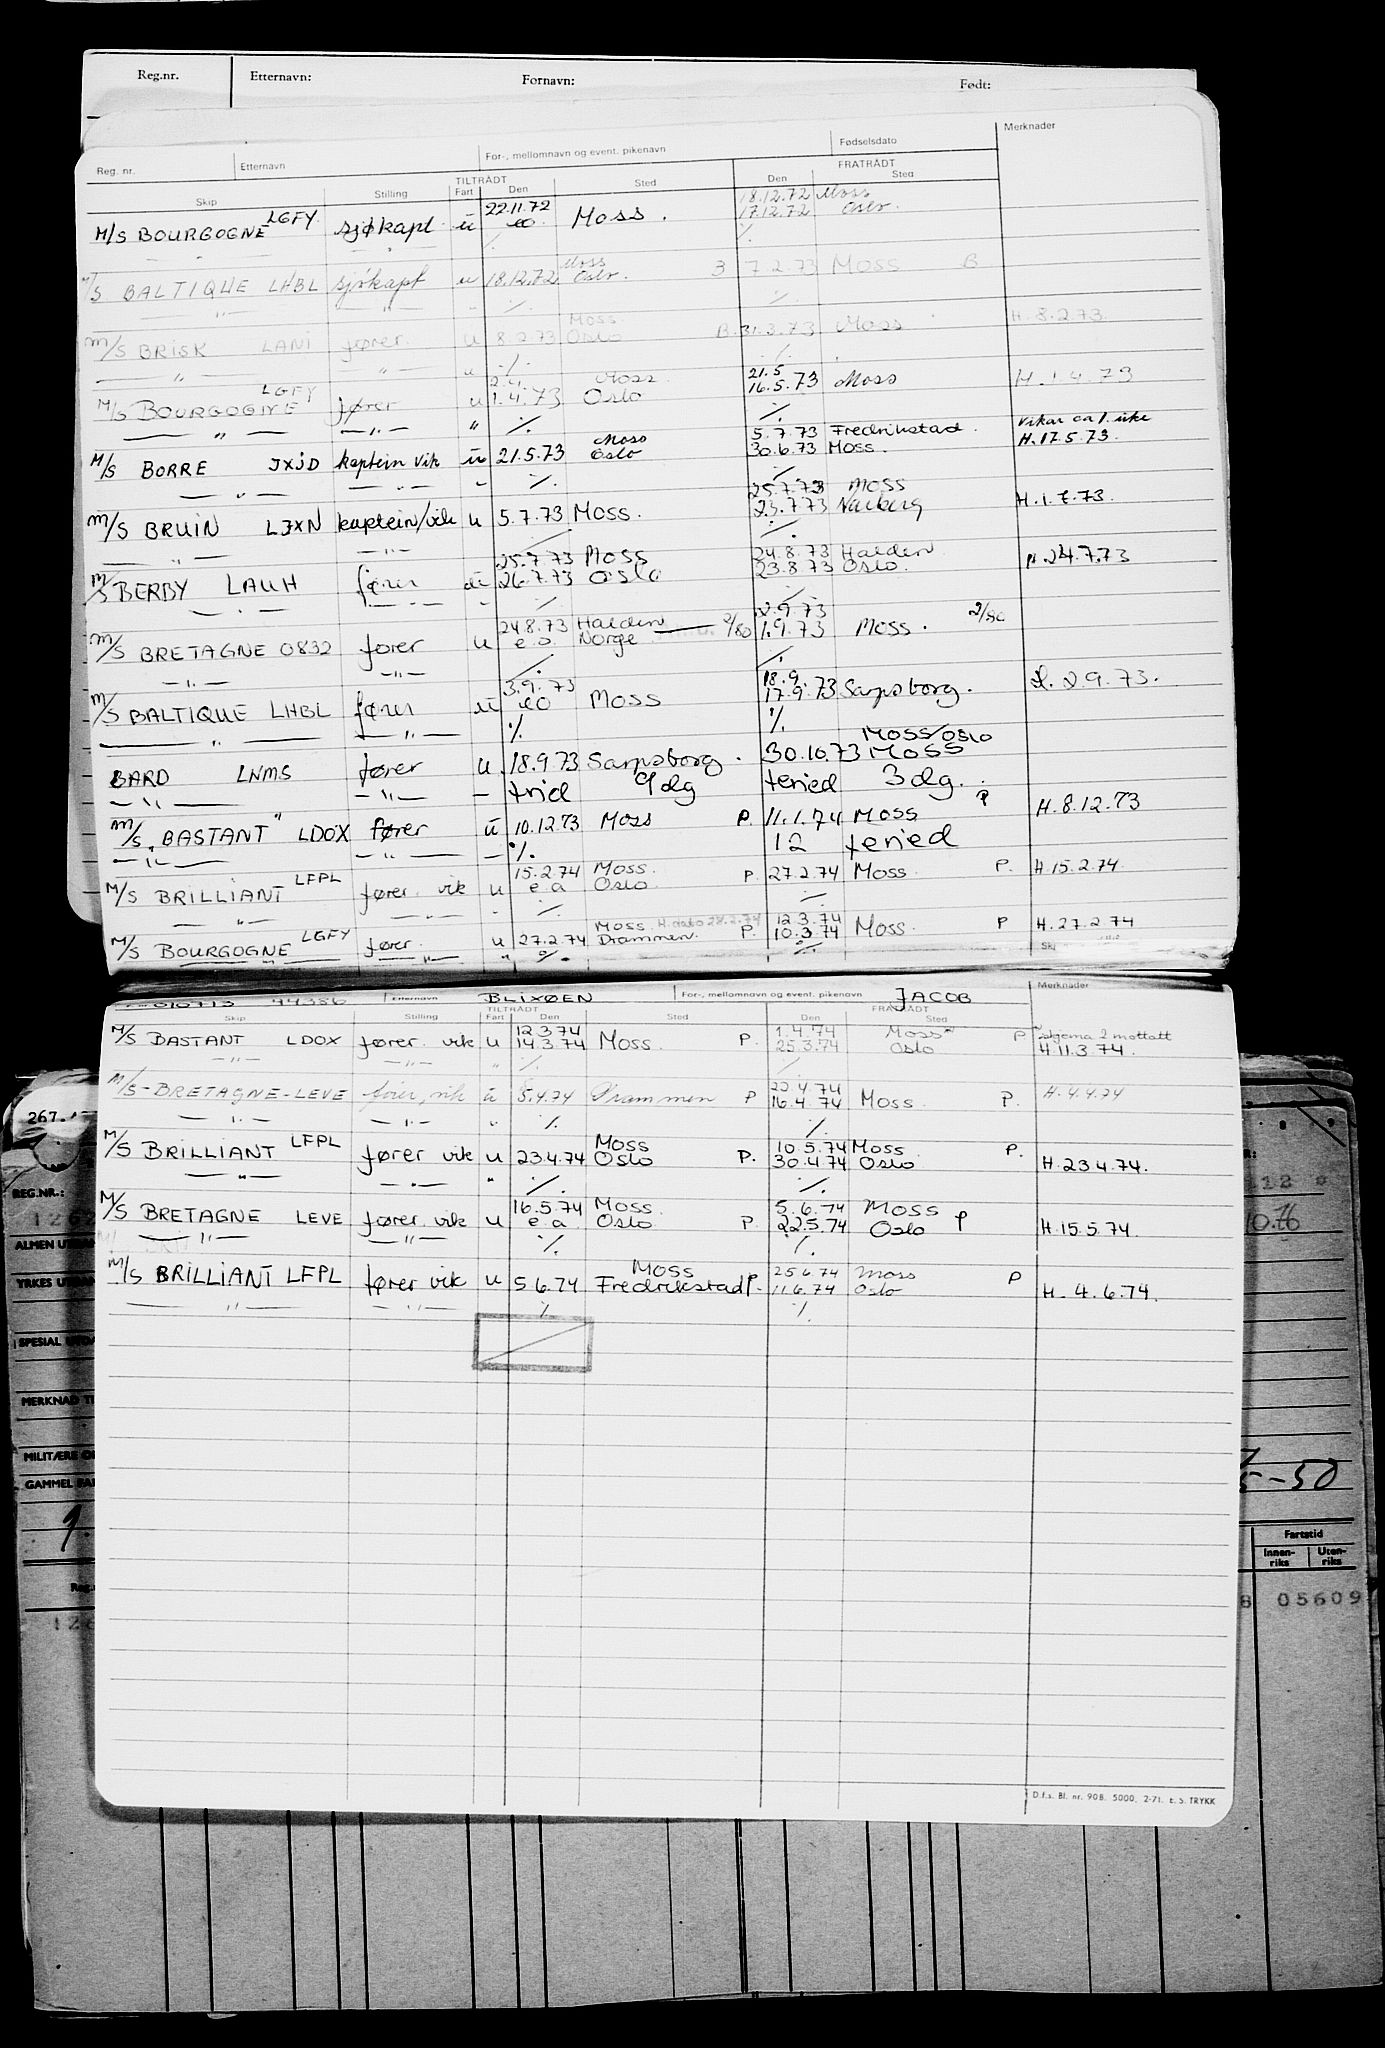 Reg.nr. Etternavn: Fornavn: Født:
Reg. nr. Etternavn For-, mellomnavn og event. pikenavn Fødselsdato Merknader
TILTRÅDT FRATRÅDT
Skip Stilling Fart Den Sted Den Sted
22.11.72 18.12.72 Moss
M/S BOURGOGNE LGFY. sjøkapt. u eo Moss. 17.12.72 Oslo.
Moss
M/S BALTIQUE LHBL sjøkapt u 18.12.72 Oslo. B 7.2.73 MOSS B
Moss
M/S BRISK LANI fører. u 8.2.73 Oslo B. 31.3.73 Moss H. 8.2.73.
2.4. Moss 21.5
M/S BOURGOGNE LGFY fører u 1.4.73 Oslo 16.5.73 Moss H. 1.4.73
Moss 5.7.73 Fredrikstad. vikar ca 1. uke
M/S BORRE JXJD kaptein vik u 21.5.73 Oslo 30.6.73 Moss. H. 17.5.73.
25.7.73 MOSS
M/S BRUIN LJXN kaptein/vik u 5.7.73 MOSS. 23.7.73 Varberg H. 1.7.73.
25.7.73 MOSS 24.8.73 Halden
M/S BERBY LAUH fører u 26.7.73 Oslo 23.8.73 Oslo. H. 24.7.73
24.8.73 Halden 2.9.73
M/S BRETAGNE 0832 fører u e.o. Norge 2/80 1.9.73 Moss. 2/80
3.9.73 18.9.
M/S BALTIQUE LHBL fører u eo Moss 17.9.73 Sarpsborg. H. 2.9.73.
MOSS/OSLO
BARD LNMS fører u 18.9.73 Sarpsborg. 30.10.73 MOSS
frid 9dg feried 3dg.
M/S "BASTANT" LDOX fører u 10.12.73 Moss P. 11.1.74 Moss P H. 8.12.73
12 feried
15.2.74 Moss.
M/S BRILLIANT LFPL fører. vik u e a Oslo P. 27.2.74 Moss P. H. 15.2.74
Moss H.dato 28.2.74 12.3.74
M/S BOURGOGNE LGFY fører. u 27.2.74 Drammen. P. 10.3.74 Moss. P H. 27.2.74
010713 44386 Etternavn BLIXØEN For-, mellomnavn og event. pikenavn JACOB Merknader
TILTRÅDT FRATRÅDT
Skip Stilling Fart Den Sted Den Sted
12.3.74 1.4.74 Moss skjema 2 mottatt
M/S BASTANT LDOX fører. vik u 14.3.74 Moss. P. 25.3.74 Oslo P H. 11.3.74.
22.4.74
M/S - BRETAGNE - LEVE fører, vik u 5.4.74 Drammen P 16.4.74 Moss. P. H. 4.4.74
Moss 10.5.74 Moss
M/S BRILLIANT LFPL fører vik u 23.4.74 Oslo P. 30.4.74 Oslo P. H. 23.4.74.
16.5.74 Moss. 5.6.74 Moss
M/S BRETAGNE LEVE fører. vik u e a Oslo P. 22.5.74 Oslo P H. 15.5.74.
Moss 25.6.74 Moss
M/S BRILLIANT LFPL fører vik u 5.6.74 Fredrikstad P. 11.6.74 Oslo P H. 4.6.74.
D.f.s. Bl. nr. 90B. 5000, 2-71. E. S. TRYKK
REG.NR.:
ALMEN
YRKES
SPESIAL
MERKNAD
MILITÆRE
GAMMEL
5-50
Fartstid
Innen-riks Uten-riks
05609